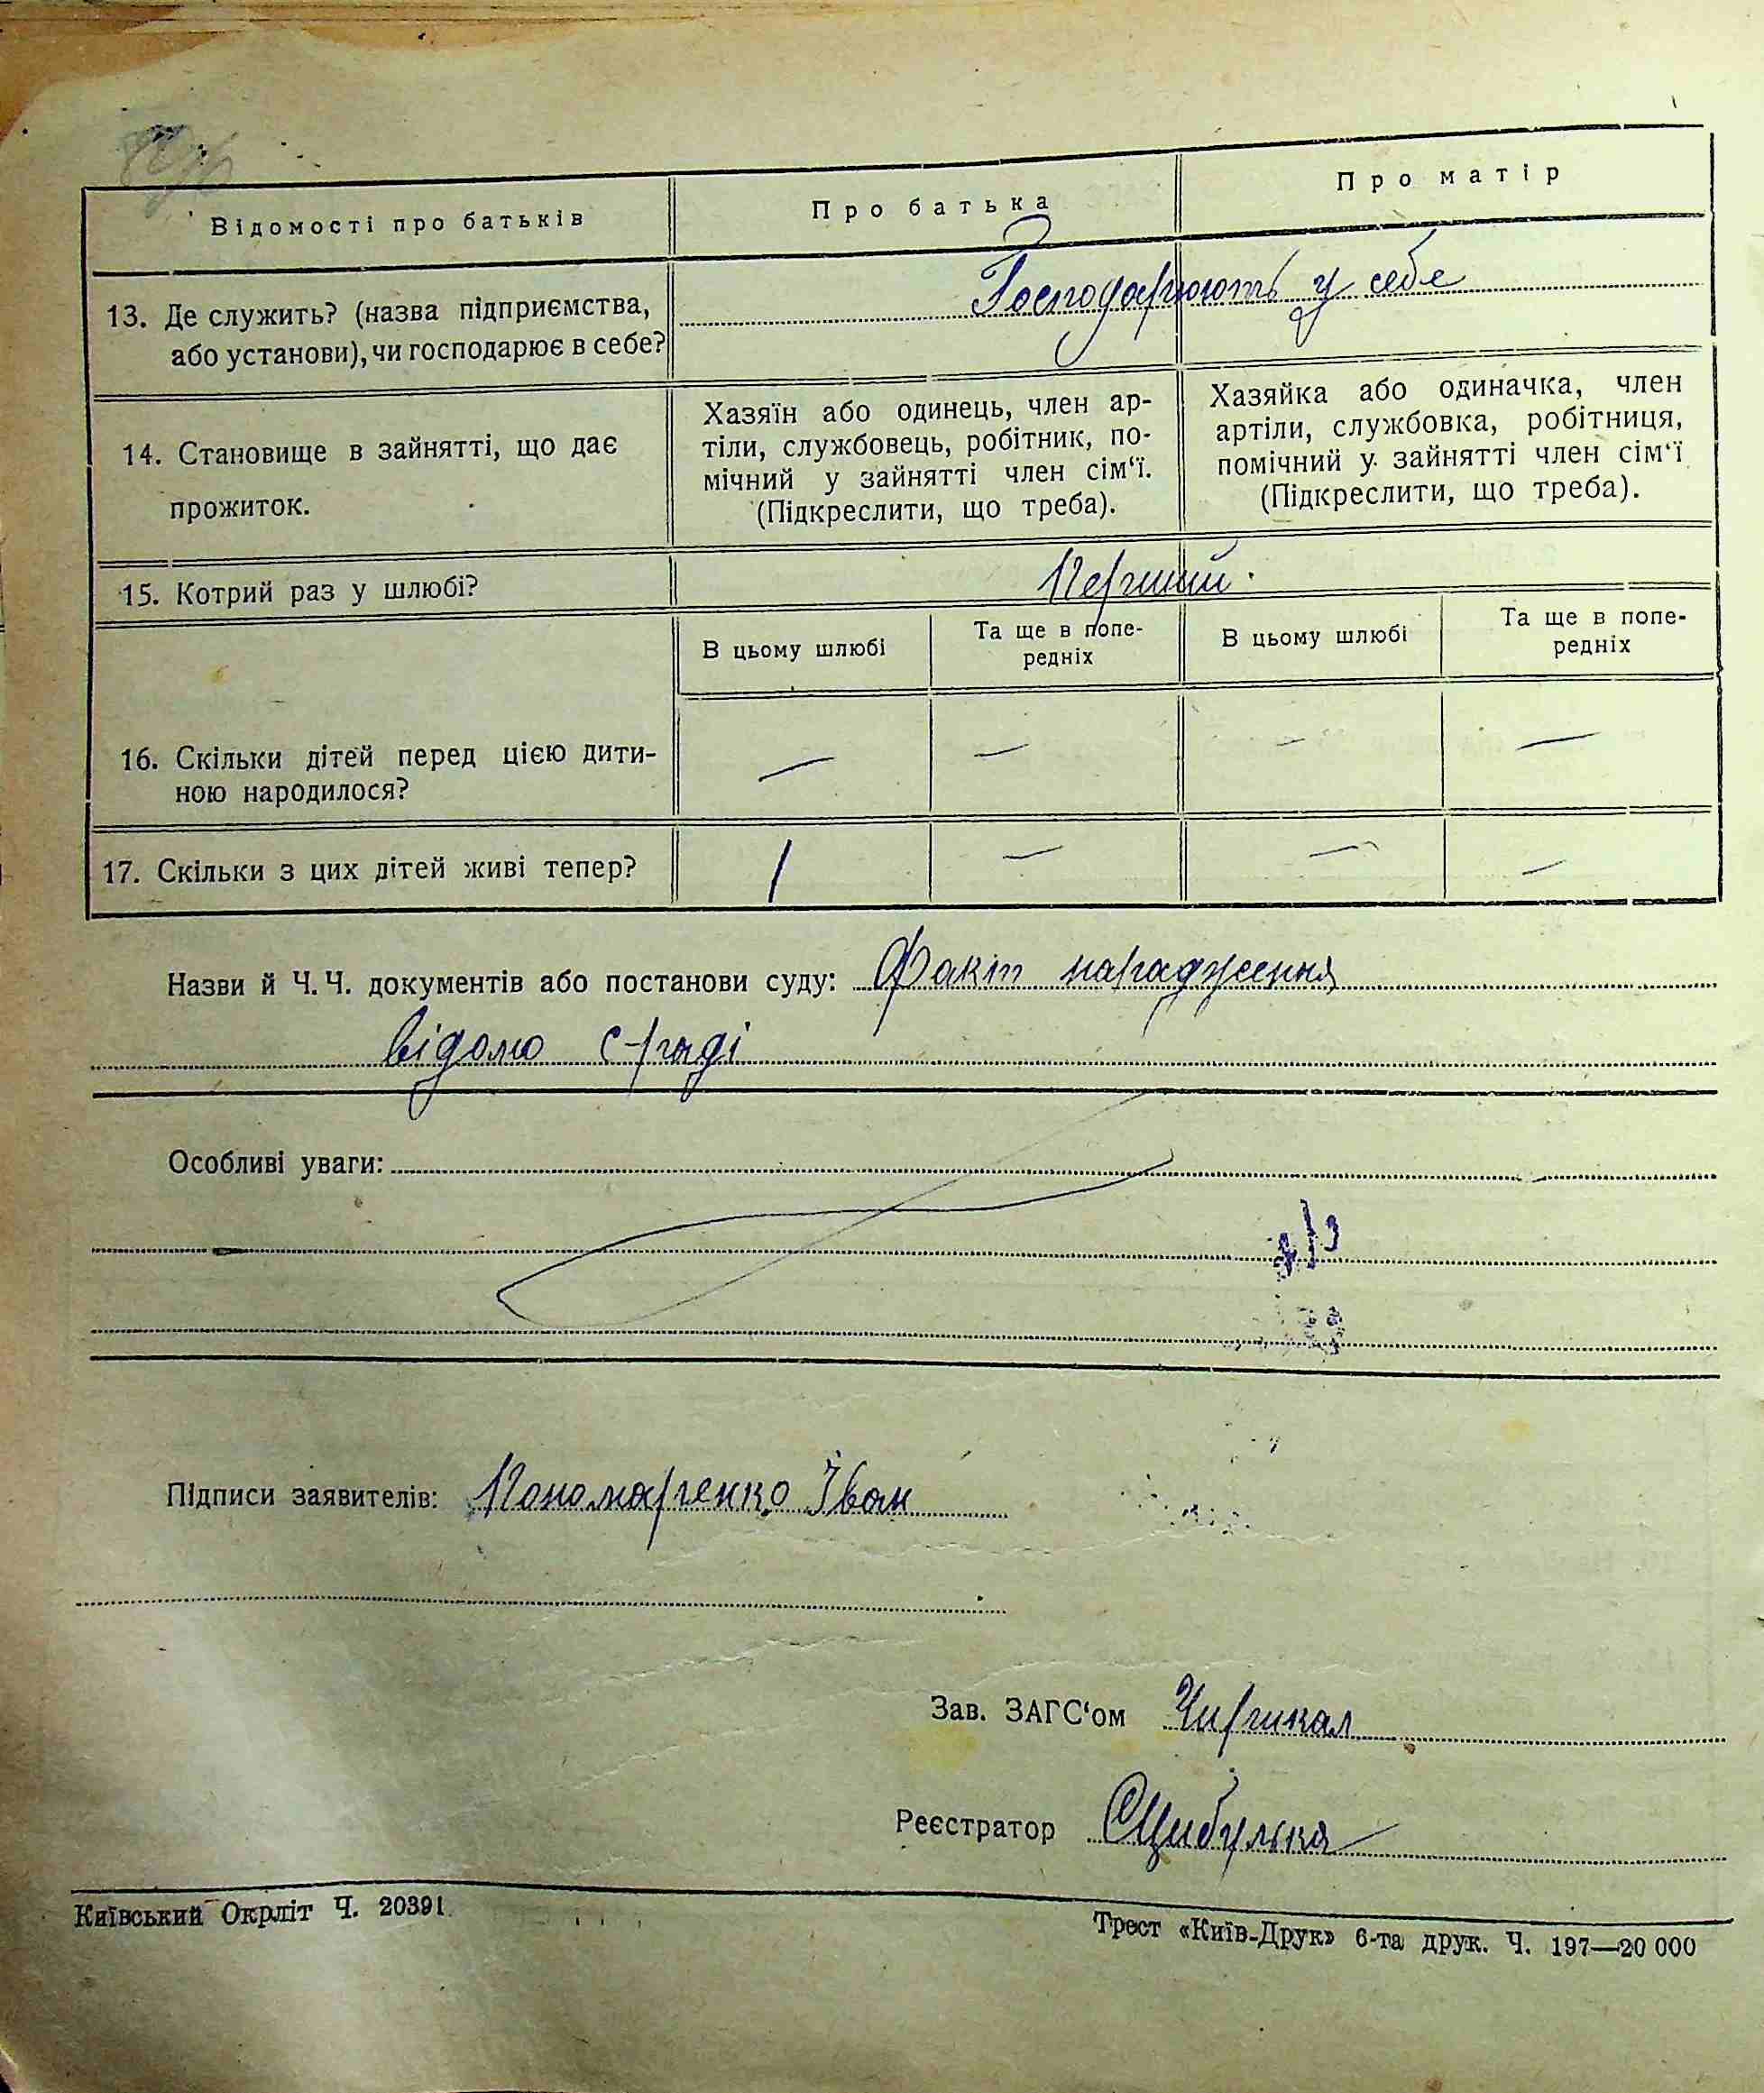 Відомості про батьків
Про батька
Про матір
13. Де служить? (назва підприємства,
або установи), чи господарює в себе?
Господарюють у себе
14. Становище в зайнятті, що дає
прожиток.
Хазяїн або одинець, член ар-
тіли, службовець, робітник, по-
мічний у зайнятті член сім‘ї.
(Підкреслити, що треба).
Хазяйка або одиначка, член
артіли, службовка, робітниця,
помічний у зайнятті член сім‘ї
(Підкреслити, що треба).
15. Котрий раз у шлюбі?
Перший.
В цьому шлюбі
Та ще в попе-
редніх
В цьому шлюбі
Та ще в попе-
редніх
16. Скільки дітей перед цією дити-
ною народилося?
— — — —
17. Скільки з цих дітей живі тепер?
/ — — —
Назви й Ч. Ч. документів або постанови суду: Факт народження
відомо с-раді
Особливі уваги:
Підписи заявителів: Пономаренко Іван
Зав. ЗАГС‘ом
Реєстратор Цибулька
Київський Окрліт Ч. 20391.
Трест «Київ-Друк» 6-та друк. Ч. 197—20 000